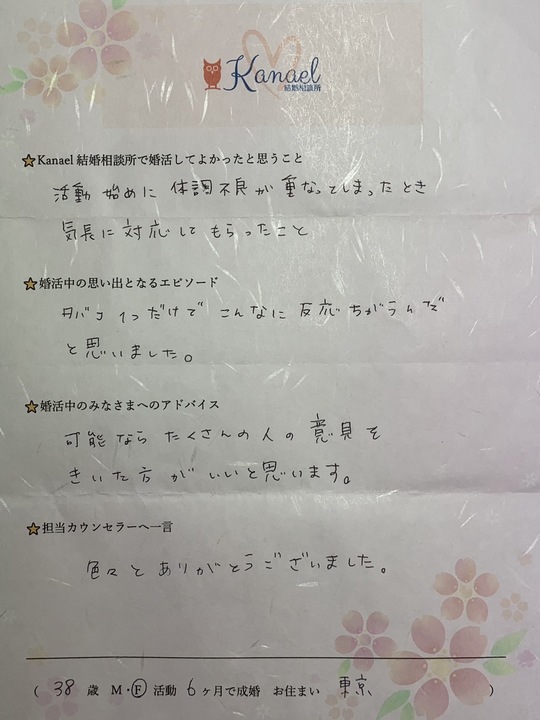 Kanael
結婚相談所
Kanael 結婚相談所で婚活してよかったと思うこと
活動 始めに 体調不良が 重なってしまったとき
気長に 対応して もらったこと
婚活中の思い出となるエピソード
タバコ 1つだけで こんなに 反応 ちがうんだ
と思いました。
婚活中のみなさまへのアドバイス
可能なら たくさんの人の 意見を
きいた方が いいと思います。
担当カウンセラーへ一言
色々と ありがとうございました。
( 38 歳 M・F 活動 6 ヶ月で成婚 お住まい 東京 )